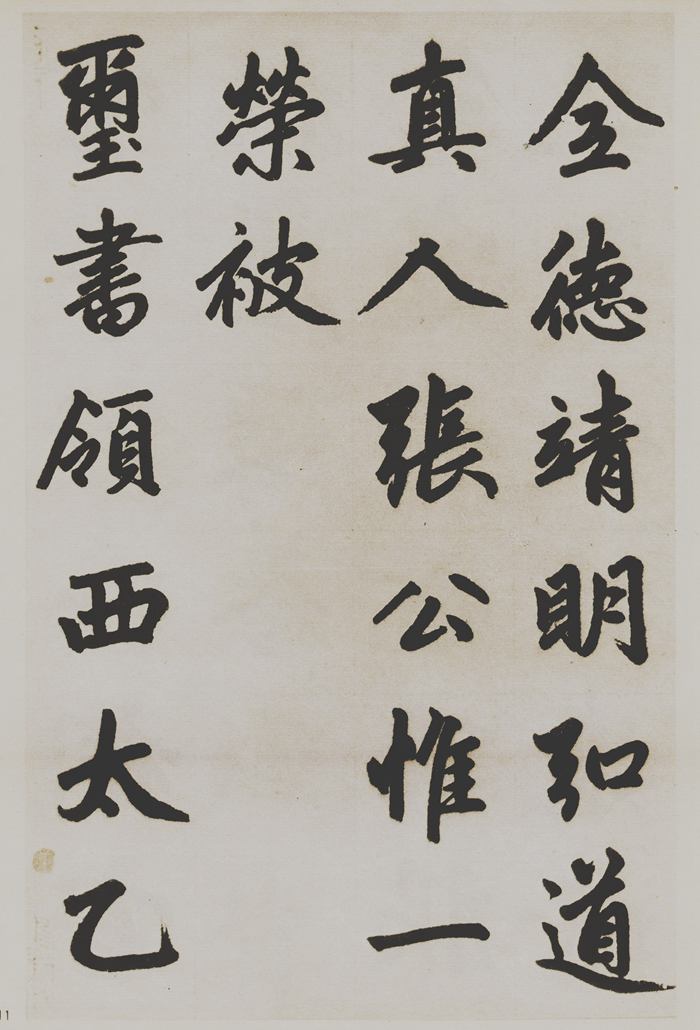 全德靖明弘道
真人張公惟一
榮被
璽書領西太乙
11